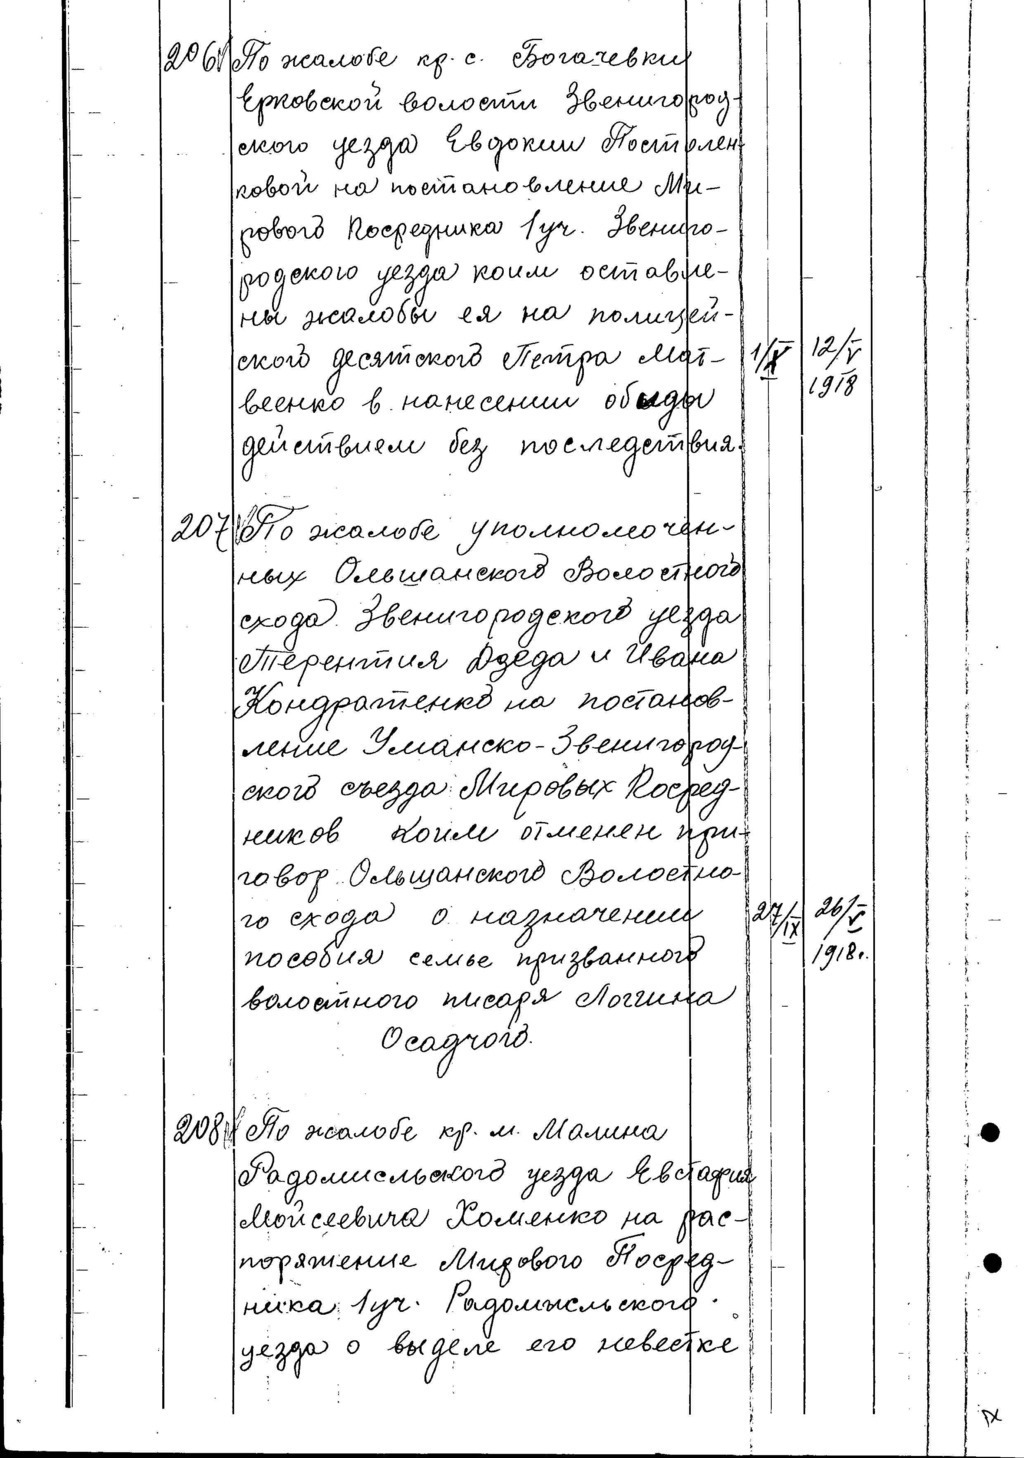 206 По жалобе кр. с. Богачевки
Ерковской волости Звенигород-
ского уезда Евдокии Постолен-
ковой на постановление Ми-
рового Посредника 1 уч. Звениго-
родского уезда коим оставле-
ны жалобы ея на полицей-
ского десятского Петра Мат- 1/X 12/V
веенко в нанесении обиды 1918
действием без последствия.
207 По жалобе уполномочен-
ных Ольшанского Волостного
схода Звенигородского уезда
Терентия Дзеда и Ивана
Кондратенко на постанов-
ление Уманско-Звенигород-
ского съезда Мировых Посред-
ников коим отменен при-
говор Ольшанского Волостно-
го схода о назначении 27/IX 26/V
пособия семье призванного 1918г.
волостного писаря Логгина
Осадчого.
208 По жалобе кр. м. Малина
Радомисльского уезда Евстафия
Мойсеевича Хоменко на рас-
поряжение Мирового Посред-
ника 1 уч. Радомысльского
уезда о выделе его невестке